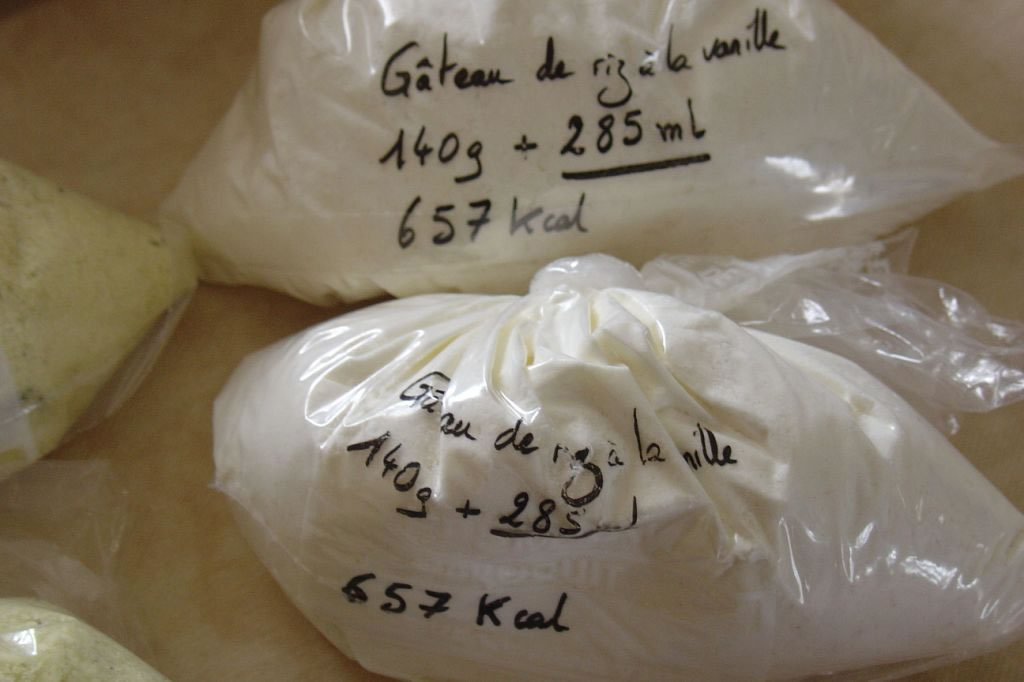 Gâteau de riz à la vanille
140g + 285 ml
657 Kcal
Gâteau de riz à la vanille
140g + 285 ml
657 Kcal